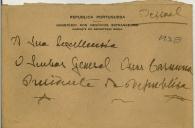 Pessoal
REPUBLICA PORTUGUESA
MINISTÉRIO DOS NEGÓCIOS ESTRANGEIROS
A Sua Excellencia
O Senhor General Carmona
Presidente da Republica